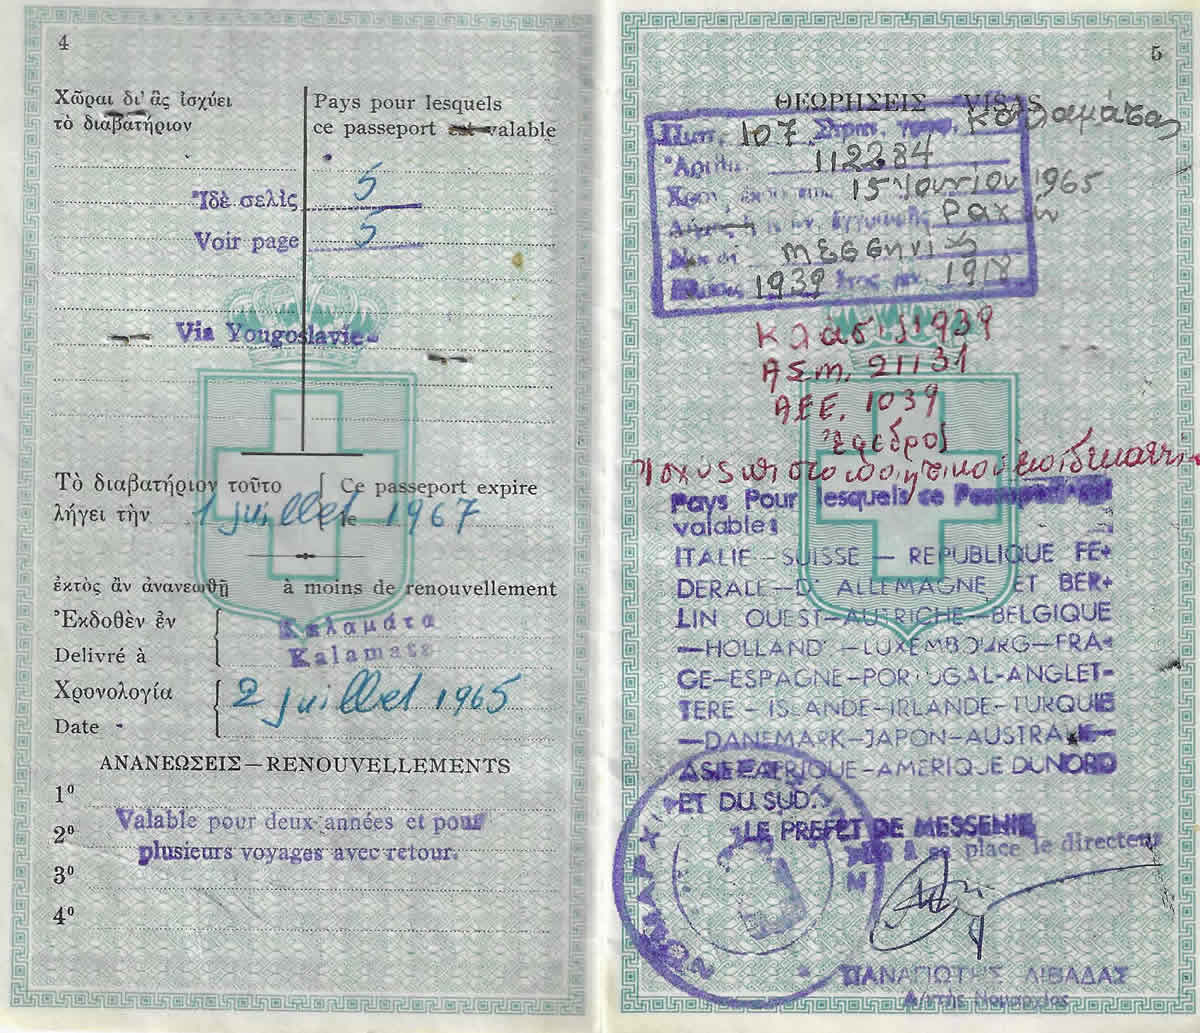 4
Χῶραι δι' ἃς ἰσχύει
τὸ διαβατήριον
Pays pour lesquels
ce passeport est valable
Ἰδὲ σελὶς 5
Voir page 5
Via Yougoslavie
Τὸ διαβατήριον τοῦτο
λήγει τὴν
Ce passeport expire
le
1 juillet 1967
ἐκτὸς ἂν ἀνανεωθῇ
à moins de renouvellement
Ἐκδοθὲν ἐν Καλαμάτα
Delivré à Kalamata
Χρονολογία
Date
2 juillet 1965
ΑΝΑΝΕΩΣΕΙΣ—RENOUVELLEMENTS
1º
Valable pour deux années et pour
2º
plusieurs voyages avec retour.
3º
4º
5
ΘΕΩΡΗΣΕΙΣ VISAS
107 Καλαμάτας
Ἀριθ. 112284
15 Ἰουνίου 1965
Ραχῶν
Μεσσηνίας
1939 1918
Κλάσις 1939
ΑΣΜ. 21131
ΑΕΕ. 1039
Ἔφεδρος
Pays Pour lesquels ce Passeport est
valable:
ITALIE—SUISSE — REPUBLIQUE FE-
DERALE—D' ALLEMAGNE ET BER-
LIN OUEST—AUTRICHE—BELGIQUE
—HOLLAND —LUXEMBOURG—FRA-
GE—ESPAGNE—PORTUGAL-ANGLET-
TERE – ISLANDE-IRLANDE-TURQUIE
—DANEMARK—JAPON—AUSTRALIE—
ASIE AFRIQUE—AMERIQUE DU NORD
ET DU SUD.
LE PREFET DE MESSENIE
à sa place le directeur
ΠΑΝΑΓΙΩΤΗΣ ΛΙΒΑΔΑΣ